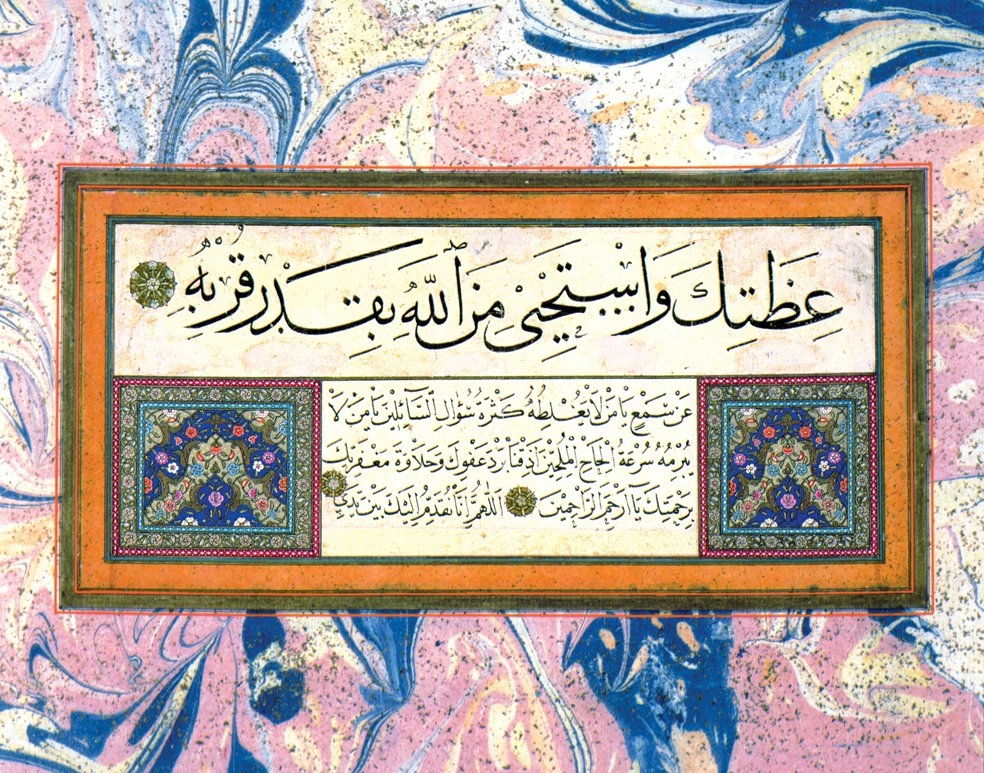 عِظَتِكَ وَاسْتَحْيِى مِنَ اللّٰهِ بِقَدْرِ قُرْبِهِ
عَنْ سَمْعٍ يَا مَنْ لَا يُغْلِطُهُ كَثْرَةُ سُؤَالِ السَّائِلِينَ يَا مَنْ لَا
يُبْرِمُهُ سُرْعَةُ اِلْحَاحِ الْمُلِحِّينَ اَذِقْنَا بَرْدَ عَفْوِكَ وَحَلَاوَةَ مَغْفِرَتِكَ
بِرَحْمَتِكَ يَا اَرْحَمَ الرَّاحِمِينَ اَللّٰهُمَّ اِنَّا نُقَدِّمُ اِلَيْكَ بَيْنَ يَدَيْ